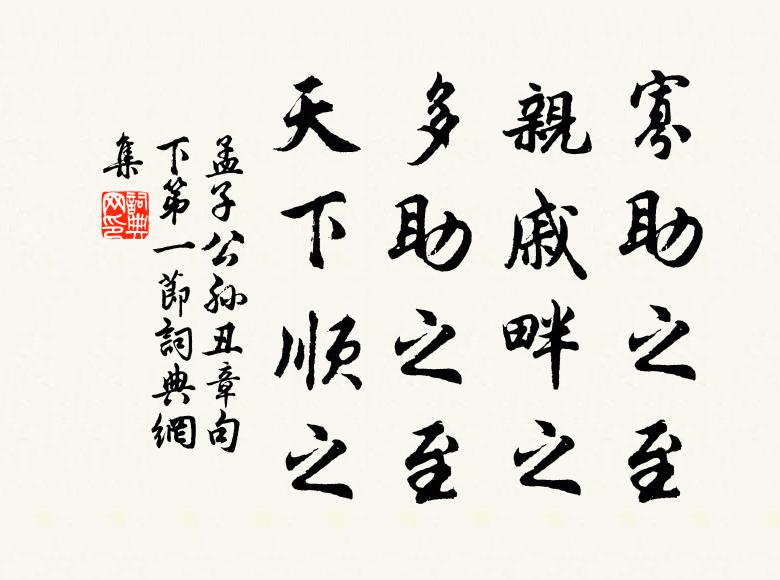 寡助之至
親戚畔之
多助之至
天下順之
孟子公孫丑章句
下第一節詞典網
集
詞典
网印